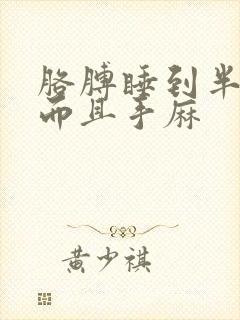 胳膊睡到半
而且手麻
黄少祺